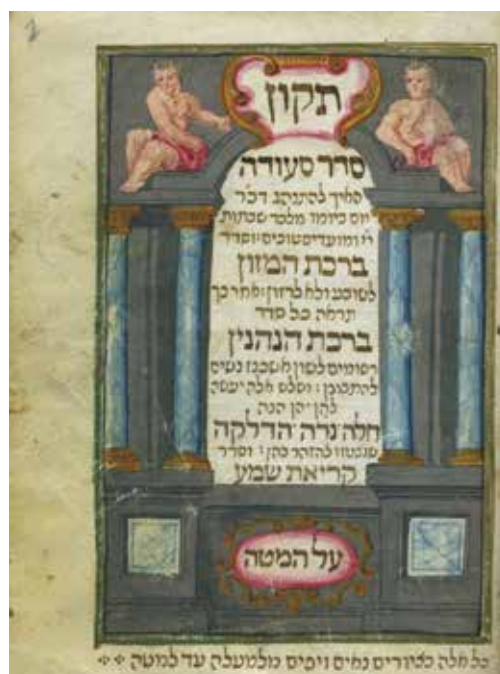 תקון
סדר סעודה
האיך להתנהג דבר
יום ביומו מלבד שבתות
וימים טובים וסדר
ברכת המזון
לשובע ולא לרזון אחר כך
תראה כל סדר
ברכת הנהנין
רשומים לשון אשכנז נשים
להתבונן ושלש אלה יעשה
להן הן הנה
חלה נדה הדלקה
להזהר בהן וסדר
קריאת שמע
על המטה
כל אלה בציורים נאים ויפים מלמעלה עד למטה